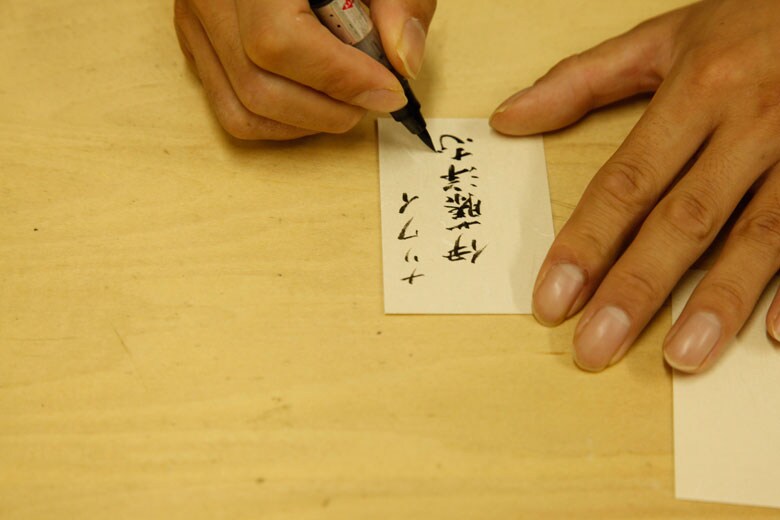 ナリワイ
伊藤洋志